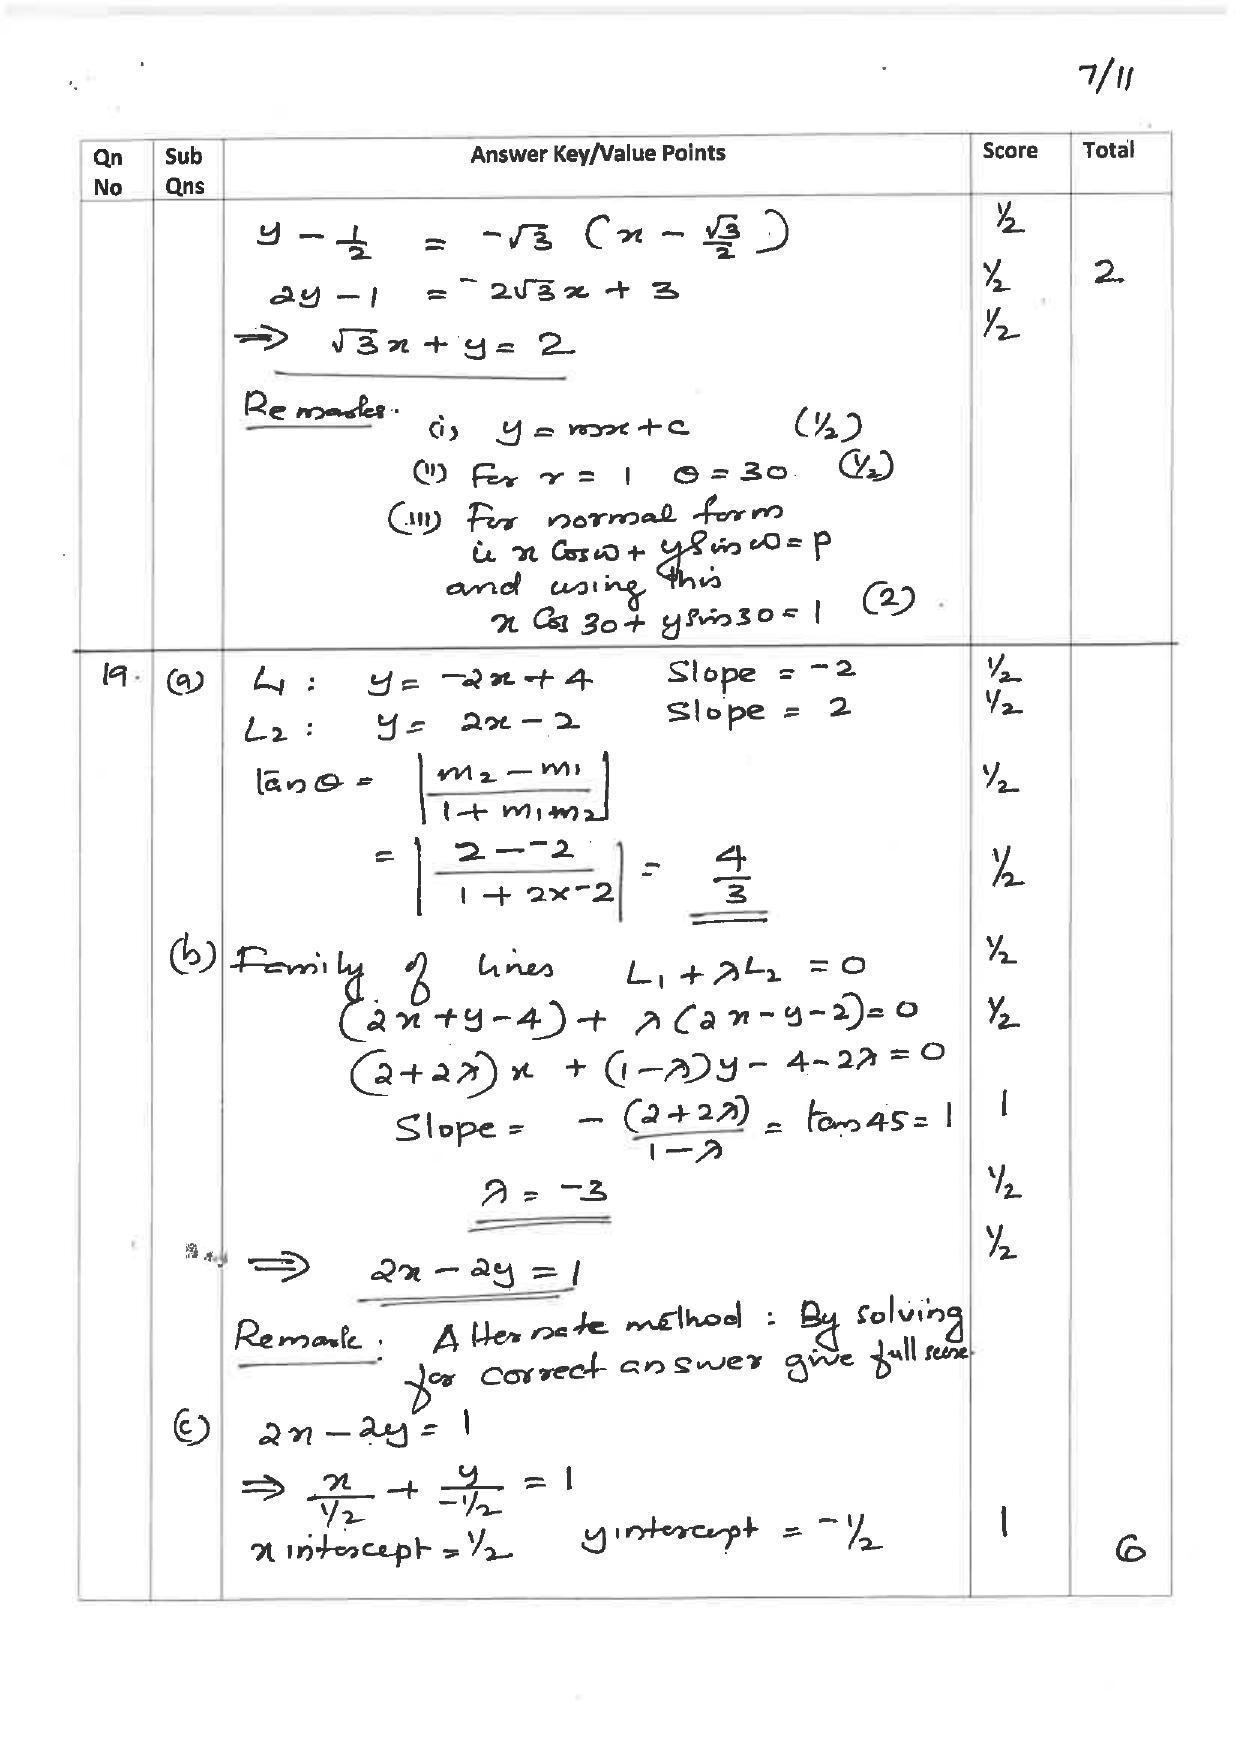 7/11
Qn No Sub Qns Answer Key/Value Points Score Total
y - 1/2 = -√3 (x - √3/2) 1/2
2y - 1 = -2√3x + 3 1/2 2
⇒ √3x + y = 2 1/2
Remarks.
(i) y = mx + c (1/2)
(ii) For r = 1 θ = 30 (1/2)
(iii) For normal form
ie x Cos ω + y Sin ω = p
and using this
x Cos 30 + y Sin 30 = 1 (2)
19. (a) L1 : y = -2x + 4 Slope = -2 1/2
L2 : y = 2x - 2 Slope = 2 1/2
tan θ = |(m2 - m1)/(1 + m1m2)| 1/2
= |(2 - -2)/(1 + 2x-2)| = 4/3 1/2
(b) Family of lines L1 + λL2 = 0 1/2
(2x + y - 4) + λ(2x - y - 2) = 0 1/2
(2 + 2λ)x + (1 - λ)y - 4 - 2λ = 0
Slope = -(2 + 2λ)/(1 - λ) = tan 45 = 1 1
λ = -3 1/2
⇒ 2x - 2y = 1 1/2
Remark: Alternate method : By solving
for correct answer give full score.
(c) 2x - 2y = 1
⇒ x/(1/2) + y/(-1/2) = 1
x intercept = 1/2 y intercept = -1/2 1 6